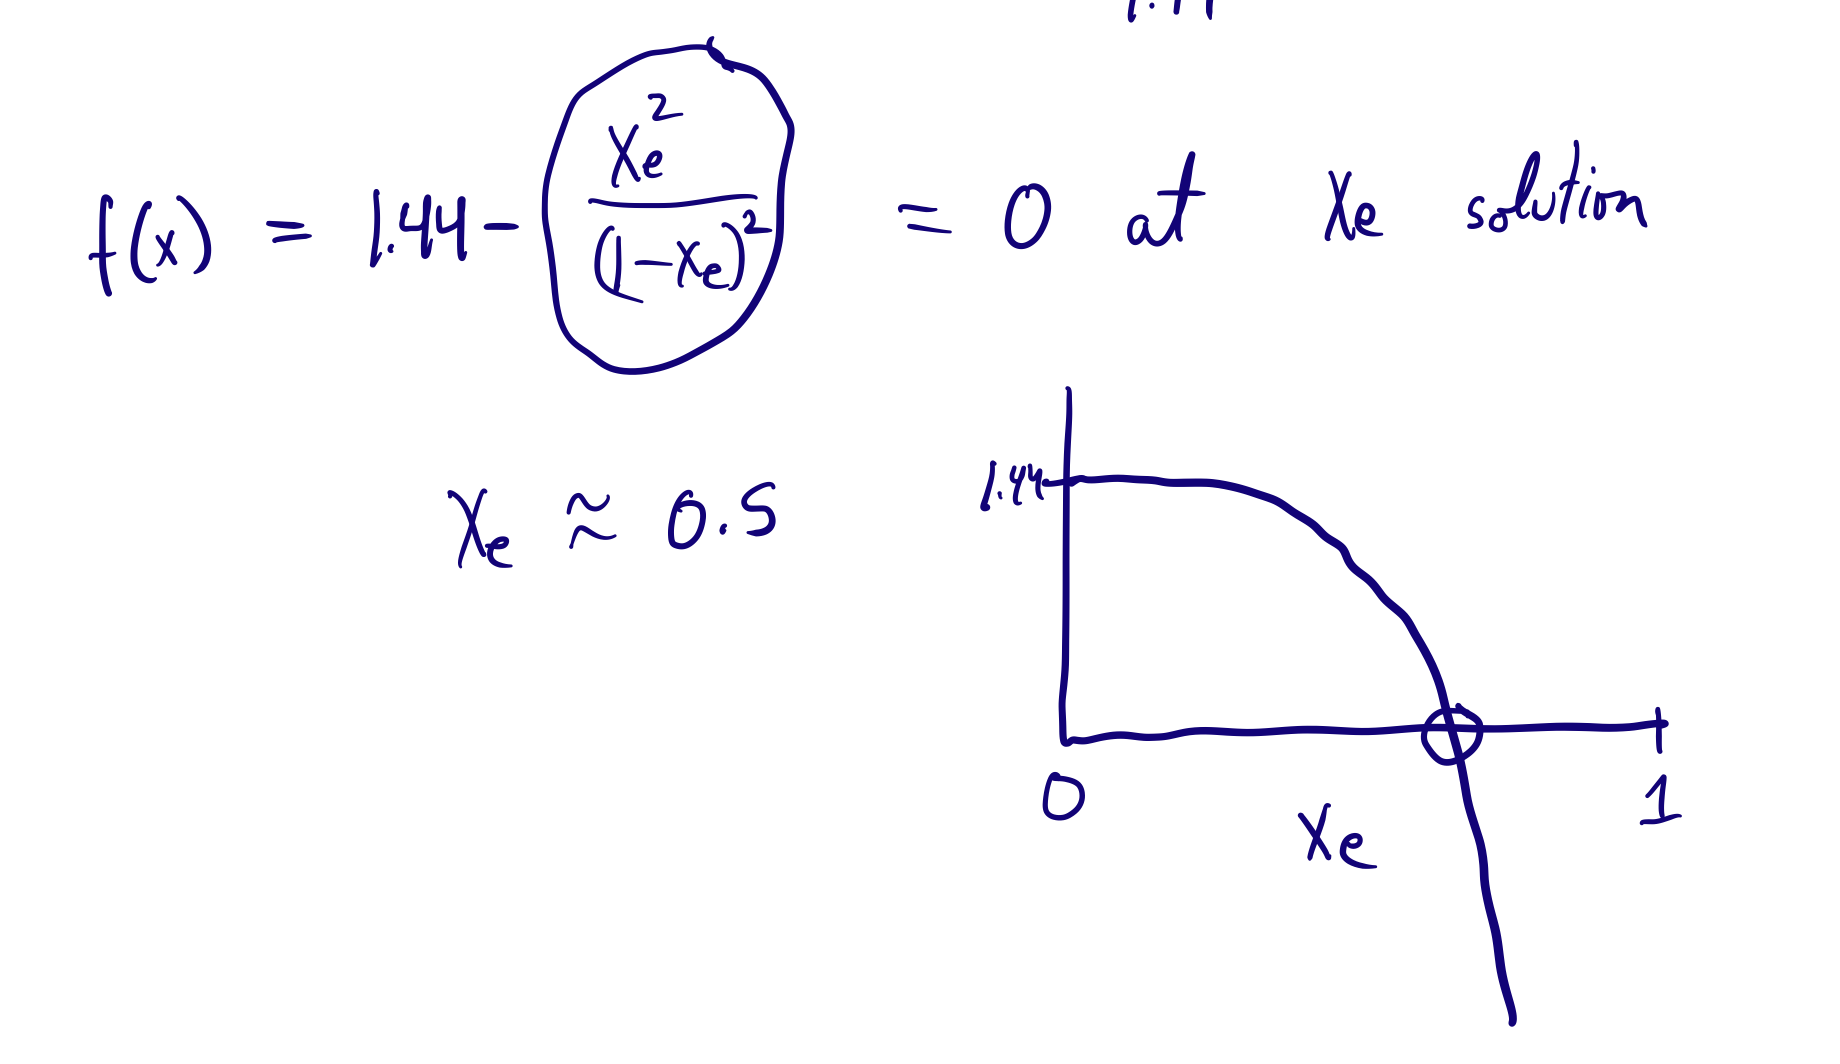 f(x) = 1.44 - Xe^2 / (1-Xe)^2 = 0 at Xe solution
Xe ≈ 0.5
1.44
0 Xe 1